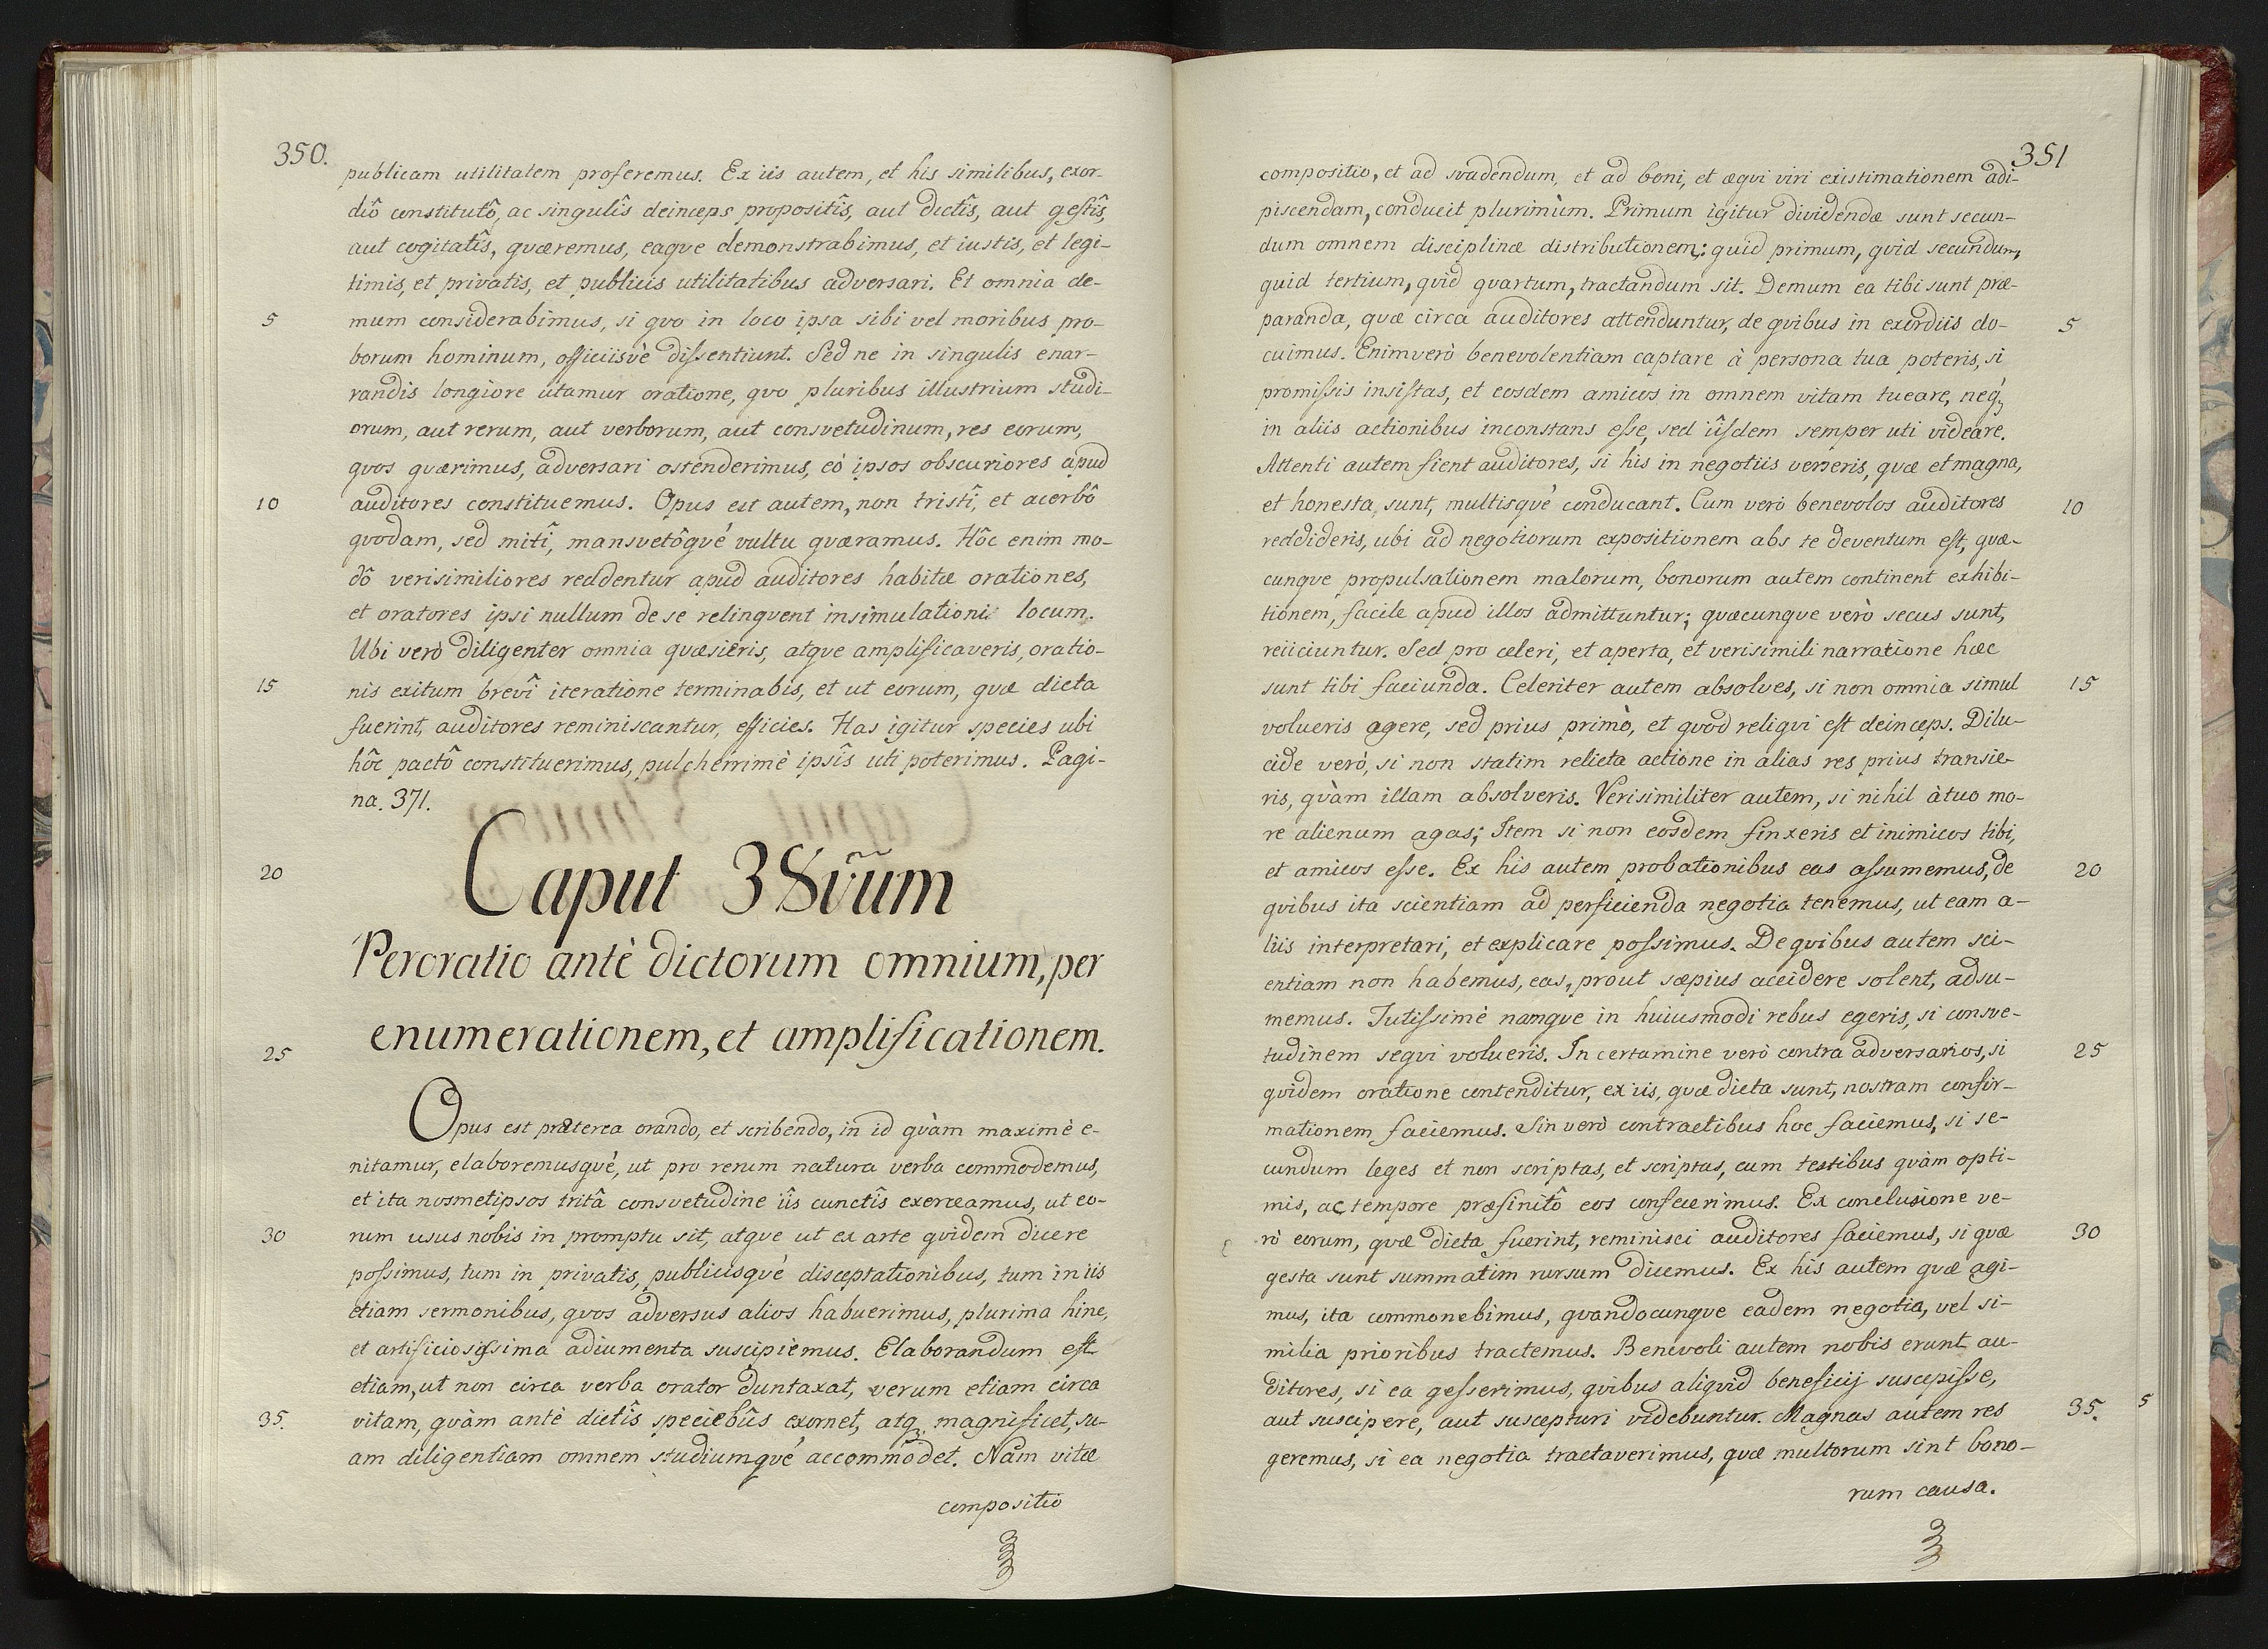 350.
publicam utilitatem proferemus. Ex iis autem, et his similibus, exor-
diô constitutô, ac singulîs deinceps propositîs, aut dictîs, aut gestîs,
aut cogitatîs, quæremus, eaque demonstrabimus, et iustis, et legi-
timis, et privatis, et publicis utilitatibus adversari. Et omnia de-
5 mum considerabimus, si quo in loco ipsa sibi vel moribus pro-
borum hominum, officiisvè dissentiunt. Sed ne in singulis enar-
randis longiore utamur oratione, quo pluribus illustrium studi-
orum, aut rerum, aut verborum, aut consvetudinum, res eorum,
quos quærimus, adversari ostenderimus, eò ipsos obscuriores apud
10 auditores constituemus. Opus est autem, non tristî, et acerbô
quodam, sed mitî, mansvetôqvé vultu quæramus. Hôc enim mo-
dô verisimiliores reddentur apud auditores habitæ orationes,
et oratores ipsi nullum de se relinquent insimulationi locum.
Ubi verò diligenter omnia quæsieris, atque amplificaveris, oratio-
15 nis exitum brevî iteratione terminabis, et ut eorum, quæ dicta
fuerint, auditores reminiscantur, efficies. Has igitur species ubi
hôc pactô constituerimus, pulcherrimè ipsîs uti poterimus. Pagi-
na. 371.
20 Caput 38vũm
Peroratio antè dictorum omnium, per
25 enumerationem, et amplificationem.
Opus est præterea orando, et scribendo, in id quàm maximè e-
nitamur, elaboremusqvé, ut pro rerum natura verba commodemus,
et ita nosmetipsos tritâ consvetudine iîs cunctîs exerceamus, ut eo-
30 rum usus nobis in promptu sit, atque ut ex arte quidem dicere
possimus, tum in privatis, publicisqvé disceptationibus, tum in iis
etiam sermonibus, quos adversus alios habuerimus, plurima hinc,
et artificiosissima adiumenta suscipiemus. Elaborandum est
etiam, ut non circa verba orator duntaxat, verum etiam circa
35. vitam, quàm antè dictîs speciebûs exornet, atq; magnificet, su-
am diligentiam omnem studiumqvé accommodet. Nam vitæ
compositio
351
compositio, et ad svadendum, et ad boni, et æqvi viri existimationem adi-
piscendam, conducit plurimùm. Primum igitur dividendæ sunt secun-
dum omnem disciplinæ distributionem: quid primum, quid secundum,
quid tertium, quid quartum, tractandum sit. Demum ea tibi sunt præ-
paranda, quæ circa auditores attenduntur, de quibus in exordiis do- 5
cuimus. Enimverò benevolentiam captare à persona tua poteris, si
promissis insistas, et eosdem amicos in omnem vitam tueare, neq;
in aliis actionibus inconstans esse, sed iîsdem semper uti videare.
Attenti autem fient auditores, si his in negotiis verseris, quæ et magna,
et honesta, sunt, multisqvé conducant. Cum verò benevolos auditores 10
reddideris, ubi ad negotiorum expositionem abs te deventum est, quæ-
cunque propulsationem malorum, bonorum autem continent exhibi-
tionem, facile apud illos admittuntur; quæcunque verò secus sunt,
reiiciuntur. Sed pro celeri, et aperta, et verisimili narratione hæc
sunt tibi faciunda. Celeriter autem absolves, si non omnia simul 15
volueris agere, sed prius primò, et quod reliqui est deinceps. Dilu-
cide verò, si non statim relicta actione in alias res prius transie-
ris, quàm illam absolveris. Verisimiliter autem, si nihil à tuo mo-
re alienum agas; Item si non eosdem finxeris et inimicos tibi,
et amicos esse. Ex his autem probationibus eas assumemus, de 20
quibus ita scientiam ad perficienda negotia tenemus, ut eam a-
liis interpretari, et explicare possimus. De quibus autem sci-
entiam non habemus, eas, prout sæpius accidere solent, adsu-
memus. Tutissimè namque in huiusmodi rebus egeris, si consve-
tudinem sequi volueris. In certamine verò contra adversarios, si 25
quidem oratione contenditur, ex iis, quæ dicta sunt, nostram confir-
mationem faciemus. Sin verò contractibus hoc faciemus, si se-
cundum leges et non scriptas, et scriptas, cum testibus quàm opti-
mis, ac tempore præfinitô eos confecerimus. Ex conclusione ve-
rò eorum, quæ dicta fuerint, reminisci auditores faciemus, si quæ 30
gesta sunt summatim rursum dicemus. Ex his autem quæ agi-
mus, ita commonebimus, quandocunque eadem negotia, vel si-
milia prioribus tractemus. Benevoli autem nobis erunt au-
ditores, si ea gesserimus, quibus aliquid beneficij suscepisse,
aut suscipere, aut suscepturi videbuntur. Magnas autem res 35. 5
geremus, si ea negotia tractaverimus, quæ multorum sint bono-
rum causa.